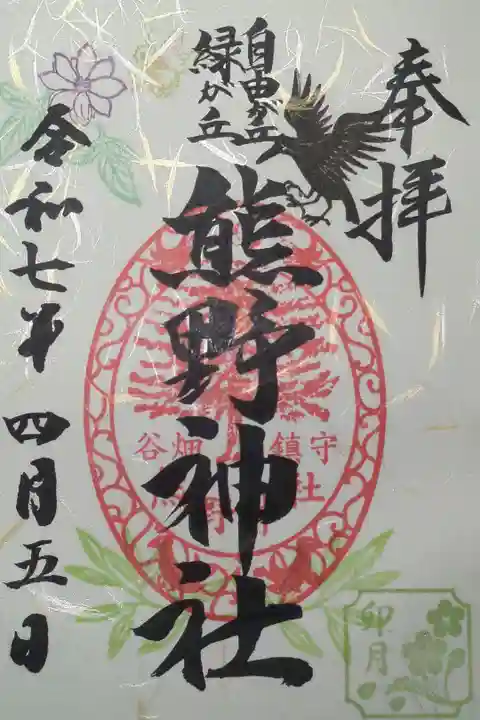 奉拝
自由が丘
緑が丘
熊野神社
谷畑 鎮守
熊野神社
令和七年 四月五日
卯月